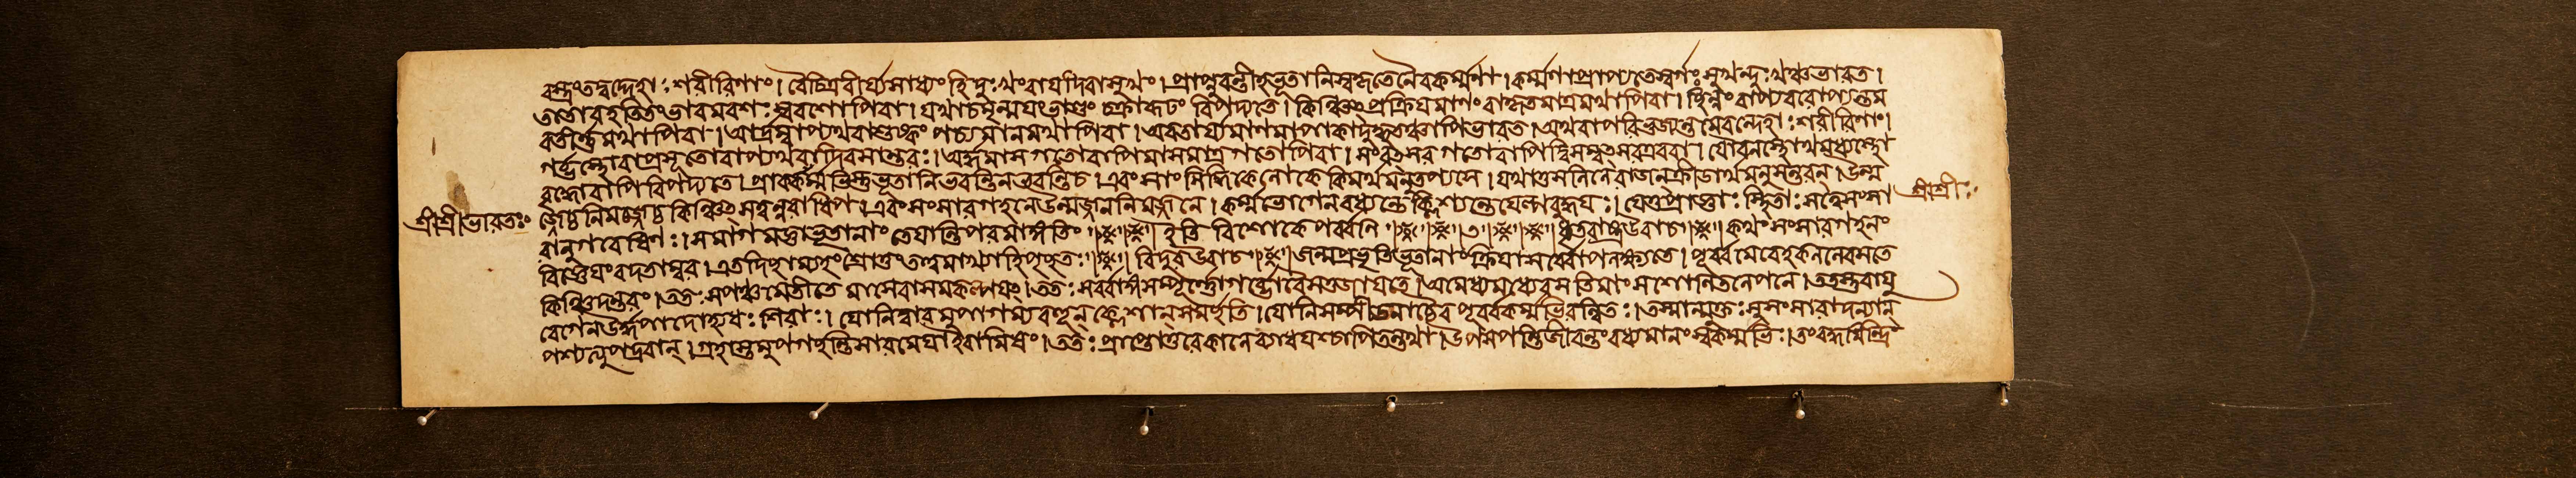 বস্ত্রং তদ্বদ্দেহাঃ শরীরিণাং। বৈচিত্রবীর্য্যসাধ্যং হি দুঃখং বা যদি বা সুখং। প্রাপ্নুবন্তীহ ভূতানি স্বকৃতেনৈব কর্ম্মণা। কর্ম্মণা প্রাপ্যতে স্বর্গঃ সুখন্দুঃখঞ্চ ভারত।
ততো বহতি তং ভারমবশঃ স্ববশোপি বা। যথা চ মৃন্ময়ং ভাণ্ডং চক্রারূঢং বিপদ্যতে। কিঞ্চিৎ প্রক্রিয়মাণং বা কৃতমাত্রমথাপি বা। ছিন্নং বাপ্যবরোপ্যন্তম
বতীর্ণ্ণমথাপি বা। আর্দ্রম্বাপ্যথবা শুষ্কং পচ্যমানমথাপি বা। অবতার্য্যমাণমাপাকাদুদ্ধৃতঞ্চাপি ভারত। অথবা পরিভুজ্যন্তমেবন্দেহাঃ শরীরিণাং।
গর্ব্ভস্থো বা প্রসূতো বাপ্যথ বা দিবসান্তরঃ। অর্দ্ধমাস গতো বাপি মাসমাত্র গতোপি বা। সংবৎসর গতো বাপি দ্বিসম্বৎসর এব বা। যৌবনস্থোথ মধ্যস্থো
বৃদ্ধো বাপি বিপদ্যতে। প্রাক্কর্ম্মভিস্তু ভূতানি ভবন্তি ন ভবন্তি চ। এবং সাং সিদ্ধিকে লোকে কিমর্থমনুতপ্যসে। যথা তু সলিলে রাজন্ ক্রীডার্থমনুসন্তরন্। উন্ম
জ্জেচ্চ নিমজ্জেচ্চ কিঞ্চিৎ সত্বন্নরাধিপ। এবং সংসারগহনে উন্মজ্জননিমজ্জনে। কর্ম্মভোগেন বধ্যন্তে ক্লিশ্যন্তে যেল্পবুদ্ধয়ঃ। যে তু প্রাজ্ঞাঃ স্থিতাঃ সত্বে সংসা
শ্রীশ্রীভারতঃ
শ্রীশ্রীঃ
রানুগবেষিণঃ। সমাগমজ্ঞা ভূতানাং তে যান্তি পরমাঙ্গতিং॥ ইতি বিশোকে পর্ব্বণি ॥ ৩॥ ধৃতরাষ্ট্র উবাচ॥ কথং সংসারগহনং
বিজ্ঞেয়ং বদতাম্বর। এতদিচ্ছাম্যহং শ্রোতুং তত্ত্বমাখ্যাহি পৃচ্ছতঃ॥ বিদুর উবাচ॥ জন্মপ্রভৃতি ভূতানাং ক্রিয়া সর্ব্বোপলক্ষ্যতে। পূর্ব্বমেবেহ কললে বসতে
কিঞ্চিদন্তরং। ততঃ স পঞ্চমেতীতে মাসে বাসমকল্পয়ৎ। ততঃ সর্ব্বাঙ্গসম্পূর্ণ্ণো গর্ব্ভো বৈ স তু জায়তে। অমেধ্যমধ্যে বসতি মাংসশোণিতলেপনে। ততস্তু বায়ু
বেগেন উর্দ্ধপাদো হ্যধঃশিরাঃ। যোনিদ্বারমুপাগম্য বহূন্ ক্লেশান্ সমৃচ্ছতি। যোনিসম্পীডনাচ্চৈব পূর্ব্বকর্ম্মভিরন্বিতঃ। তস্মান্মুক্তঃ স সংসারাদন্যান্
পশ্যত্যুপদ্রবান্। গ্রহাস্তমুপগচ্ছন্তি সারমেয়া ইবামিষং। ততঃ প্রাপ্তোত্তরে কালে ব্যাধয়শ্চাপি তন্তথা। উপসর্পন্তি জীবন্তং বধ্যমানং স্বকর্ম্মভিঃ। তং বদ্ধমিন্দ্রি